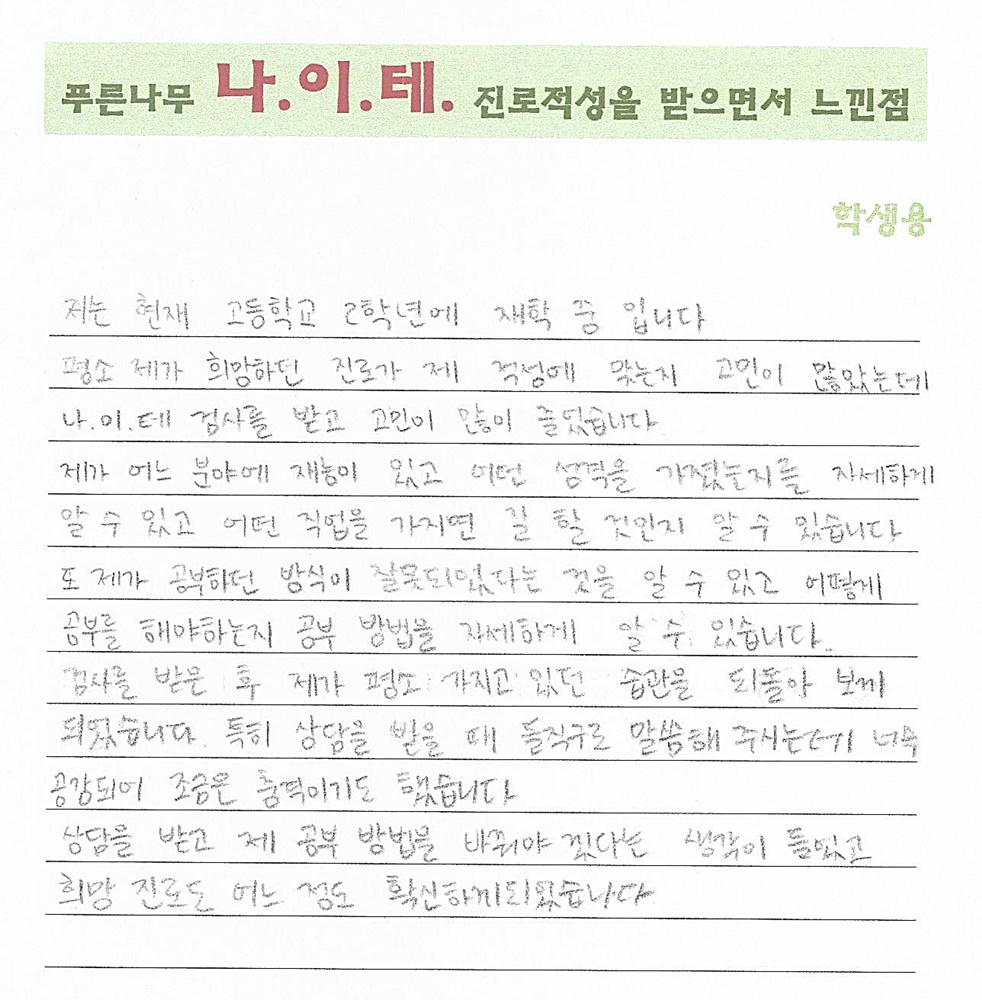 푸른나무 나.이.테. 진로적성을 받으면서 느낀점
학생용
저는 현재 고등학교 2학년에 재학 중 입니다
평소 제가 희망하던 진로가 제 적성에 맞는지 고민이 많았는데
나.이.테 검사를 받고 고민이 많이 줄었습니다
제가 어느 분야에 재능이 있고 어떤 성격을 가졌는지를 자세하게
알 수 있고 어떤 직업을 가지면 잘 할 것인지 알 수 있습니다
또 제가 공부하던 방식이 잘못되었다는 것을 알 수 있고 어떻게
공부를 해야하는지 공부 방법을 자세하게 알 수 있습니다.
검사를 받은 후 제가 평소 가지고 있던 습관을 되돌아 보게
되었습니다. 특히 상담을 받을 때 돌직구로 말씀해 주시는데 너무
공감되어 조금은 충격이기도 했습니다
상담을 받고 제 공부 방법을 바꿔야 겠다는 생각이 들었고
희망 진로도 어느 정도 확신하게되었습니다